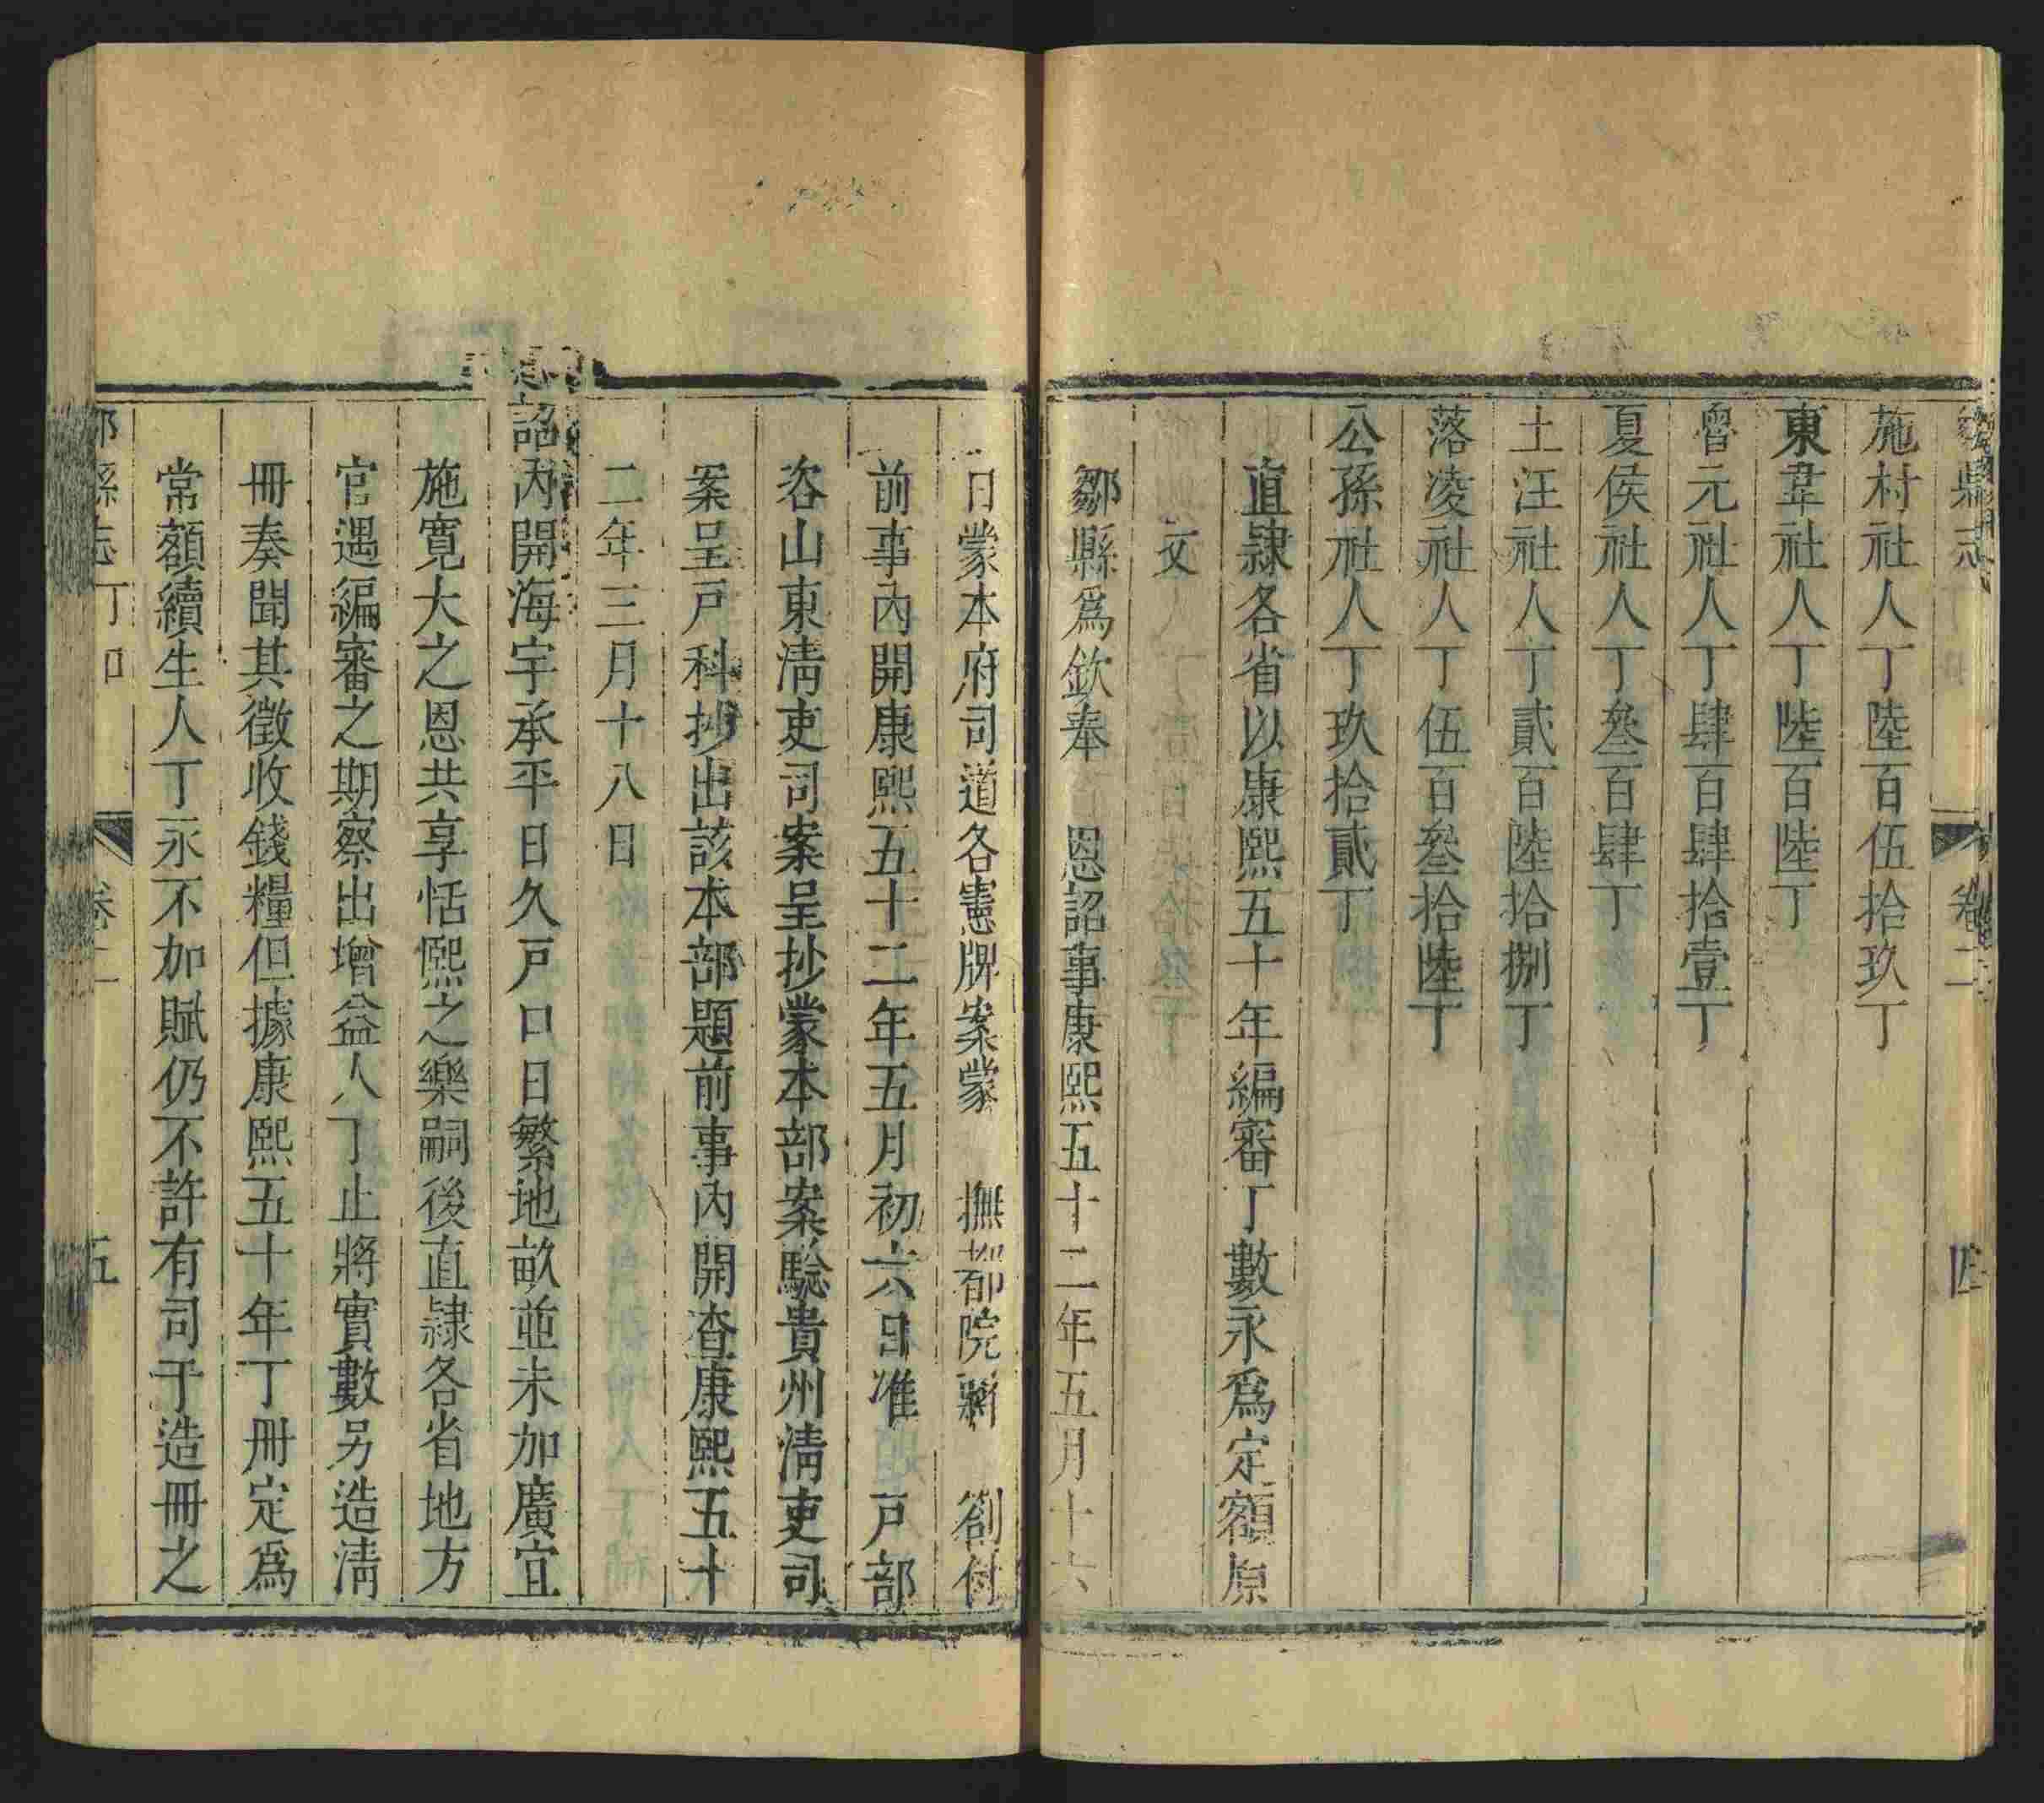 鄒縣志 卷二 四
施村社人丁陸百伍拾玖丁
東韋社人丁陸百陸丁
魯元社人丁肆百肆拾壹丁
夏侯社人丁叄百肆丁
土汪社人丁貳百陸拾捌丁
落凌社人丁伍百叄拾陸丁
公孫社人丁玖拾貳丁
直隸各省以康熙五十年編審丁數永爲定額原
文
鄒縣爲欽奉 恩詔事康熙五十二年五月十六
日蒙本府司道各憲牌案蒙 撫都院蔣 劄付
前事內開康熙五十二年五月初六日准 戶部
咨山東淸吏司案呈抄蒙本部案驗貴州淸吏司
案呈戶科抄出該本部題前事內開查康熙五十
二年三月十八日
恩詔內開海宇承平日久戶口日繁地畝並未加廣宜
施寬大之恩共享恬熙之樂嗣後直隸各省地方
官遇編審之期察出增益人丁止將實數另造淸
冊奏聞其徵收錢糧但據康熙五十年丁冊定爲
常額續生人丁永不加賦仍不許有司于造冊之
鄒縣志 丁口 卷二 五